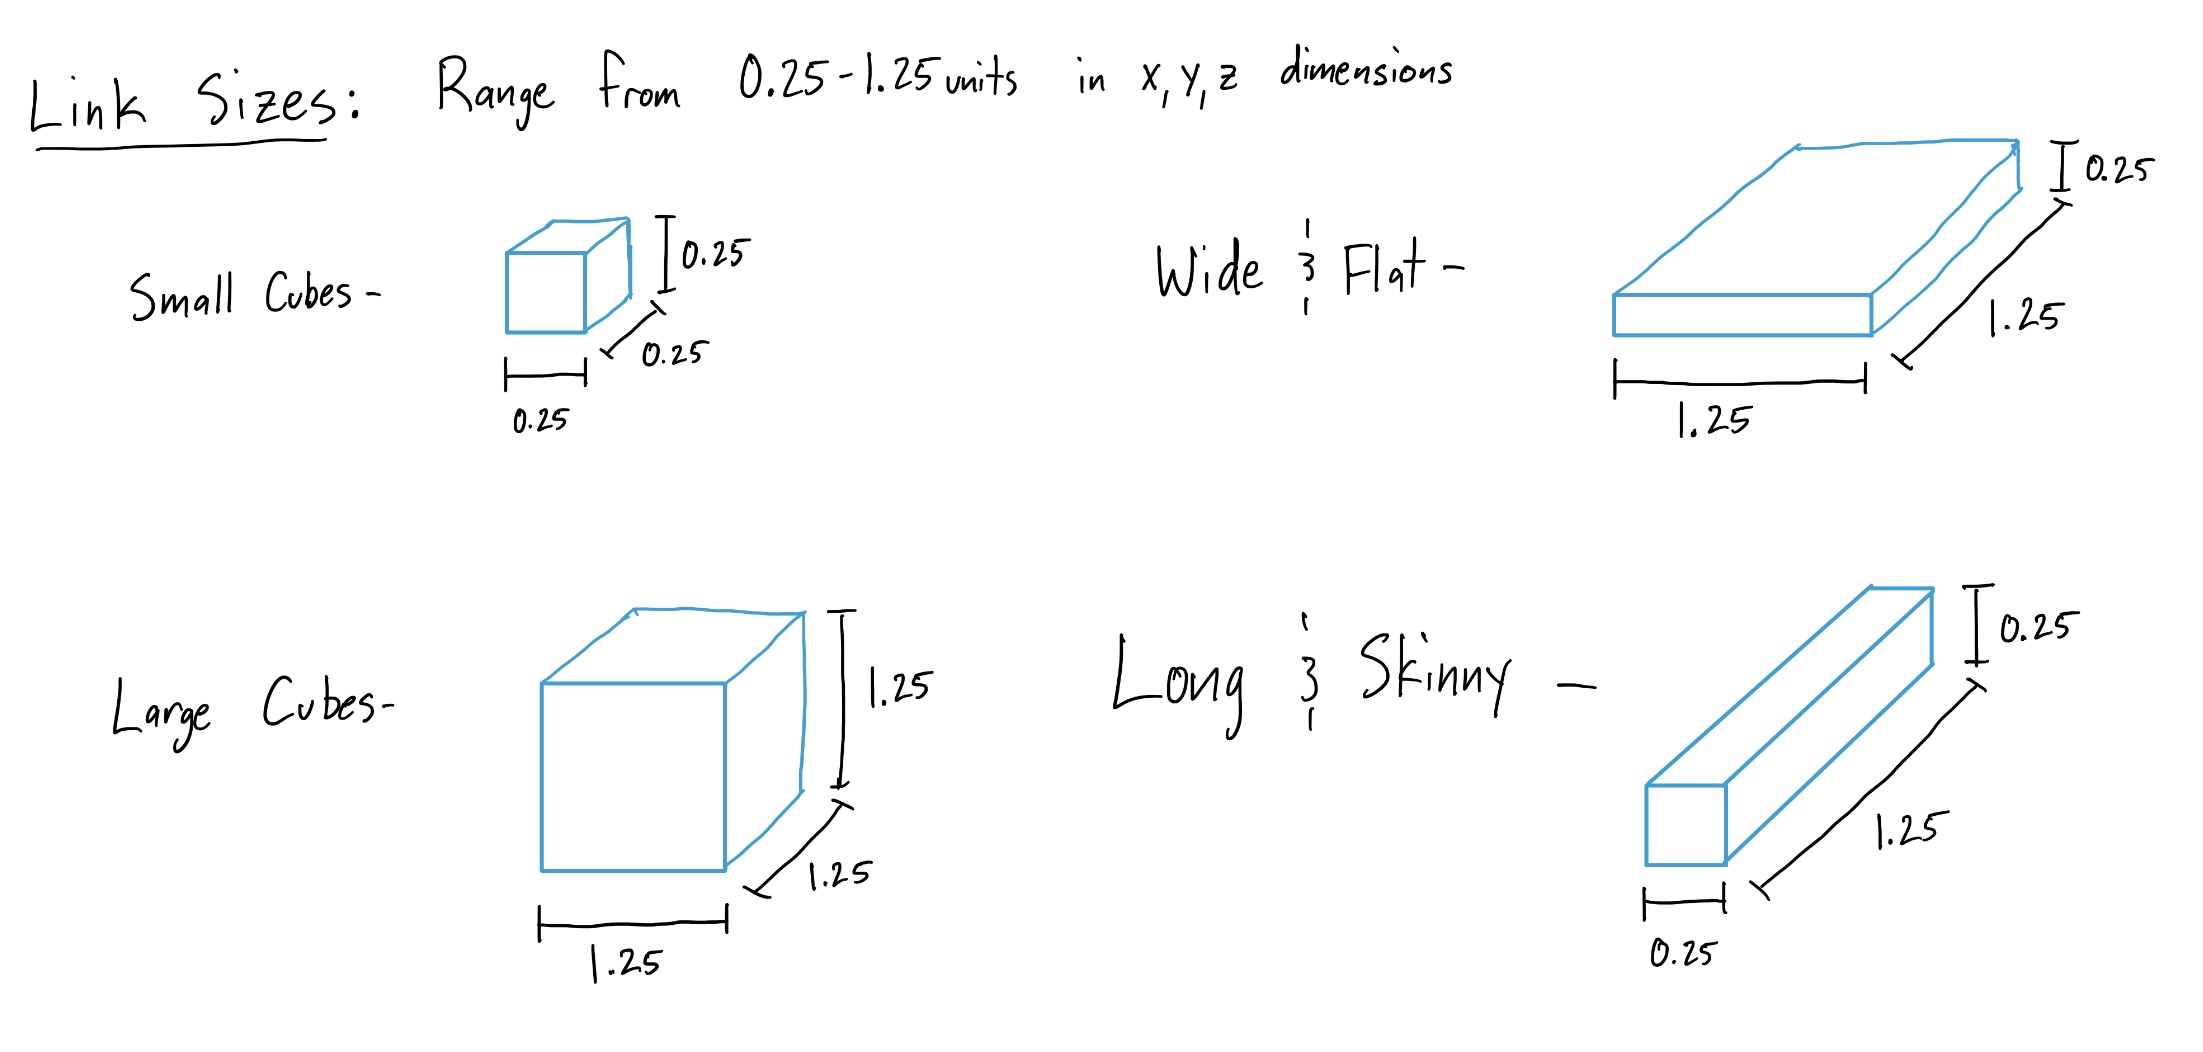 Link Sizes: Range from 0.25-1.25 units in x, y, z dimensions
Small Cubes-
0.25
0.25
0.25
Wide & Flat-
0.25
1.25
1.25
Large Cubes-
1.25
1.25
1.25
Long & Skinny -
0.25
1.25
0.25